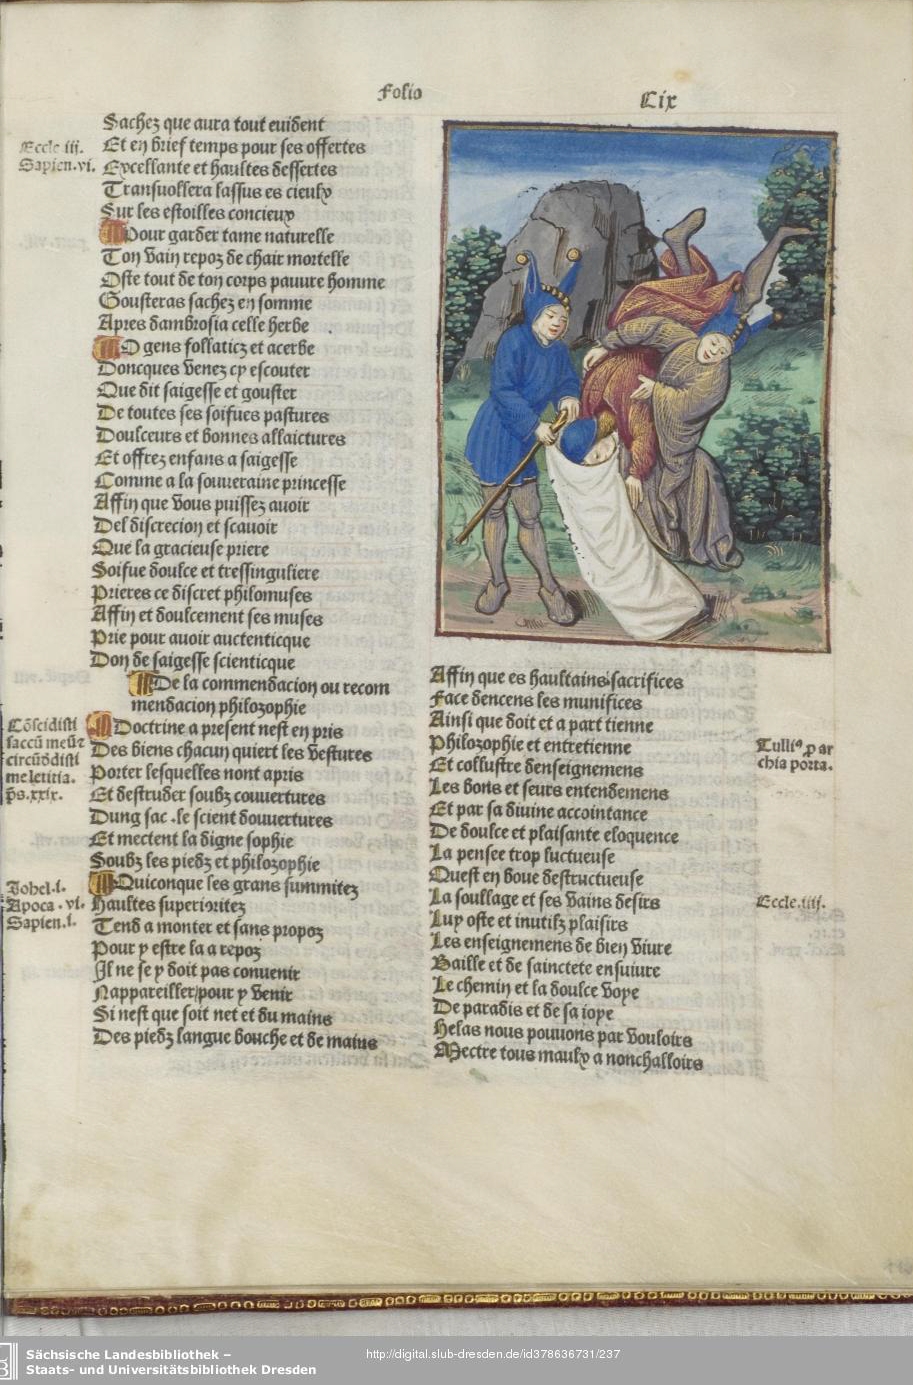 Folio Cix
Sachez que aura tout euident
Et en brief temps pour ses offertes
Excellante et haultes dessertes
Transuollera lassus es cieulx
Sur les estoilles concieux
Pour garder tame naturelle
Ton vain repoz de chair mortelle
Oste tout de ton corps pauure homme
Gousteras sachez en somme
Apres dambrosia celle herbe
O gens follaticz et acerbe
Doncques venez cy escouter
Que dit saigesse et gouster
De toutes ses soifues pastures
Doulceurs et bonnes allaictures
Et offrez enfans a saigesse
Comme a la souueraine princesse
Affin que vous puissez auoir
Del discrecion et scauoir
Que la gracieuse priere
Soifue doulce et tressinguliere
Prieres ce discret philomuses
Affin et doulcement ses muses
Prie pour auoir auctenticque
Don de saigesse scienticque
De la commendacion ou recom
mendacion philozophie
Doctrine a present nest en pris
Des biens chacun quiert les vestures
Porter lesquelles nont apris
Et destruder soubz couuertures
Dung sac .le scient douuertures
Et mectent la digne sophie
Soubz les piedz et philozophie
Quiconque les grans summitez
Haultes superioritez
Tend a monter et sans propoz
Pour y estre la a repoz
Il ne se y doit pas conuenir
Nappareiller/pour y venir
Si nest que soit net et du mains
Des piedz langue bouche et de mains
Eccle iij.
Sapien.vi.
Cõscidisti
saccũ meũ⁊
circũdisti
me letitia.
ps.xxix.
Johel.i.
Apoca.vi.
Sapien.i.
Affin que es haultains sacrifices
Face dencens les munifices
Ainsi que doit et a part tienne
Philozophie et entretienne
Et collustre denseignemens
Les bons et seurs entendemens
Et par sa diuine accointance
De doulce et plaisante eloquence
La pensee trop luctueuse
Quest en boue destructueuse
La soullage et ses vains desirs
Luy oste et inutilz plaisirs
Les enseignemens de bien viure
Baille et de sainctete ensuiure
Le chemin et la doulce voye
De paradis et de sa ioye
Helas nous pouuons par vouloirs
Mectre tous maulx a nonchalloirs
Tulliꝰ ꝓ ar
chia porta.
Eccle.iiij.
Sächsische Landesbibliothek –
Staats- und Universitätsbibliothek Dresden
http://digital.slub-dresden.de/id378636731/237